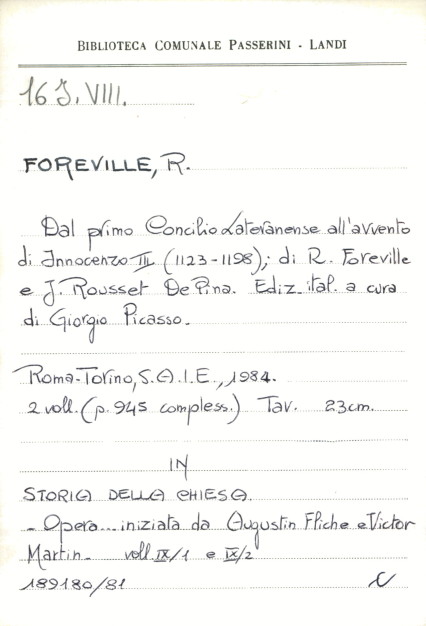 BIBLIOTECA COMUNALE PASSERINI - LANDI
16 J. VIII.
FOREVILLE, R.
Dal primo Concilio Lateranense all'avvento
di Innocenzo III (1123-1198); di R. Foreville
e J. Rousset De Pina. Ediz. ital. a cura
di Giorgio Picasso.
Roma-Torino, S.A.I.E., 1984.
2 voll. (p. 945 compless.) Tav. 23cm.
IN
STORIA DELLA CHIESA.
- Opera... iniziata da Augustin Fliche e Victor
Martin - voll. IX/1 e IX/2
189180/81